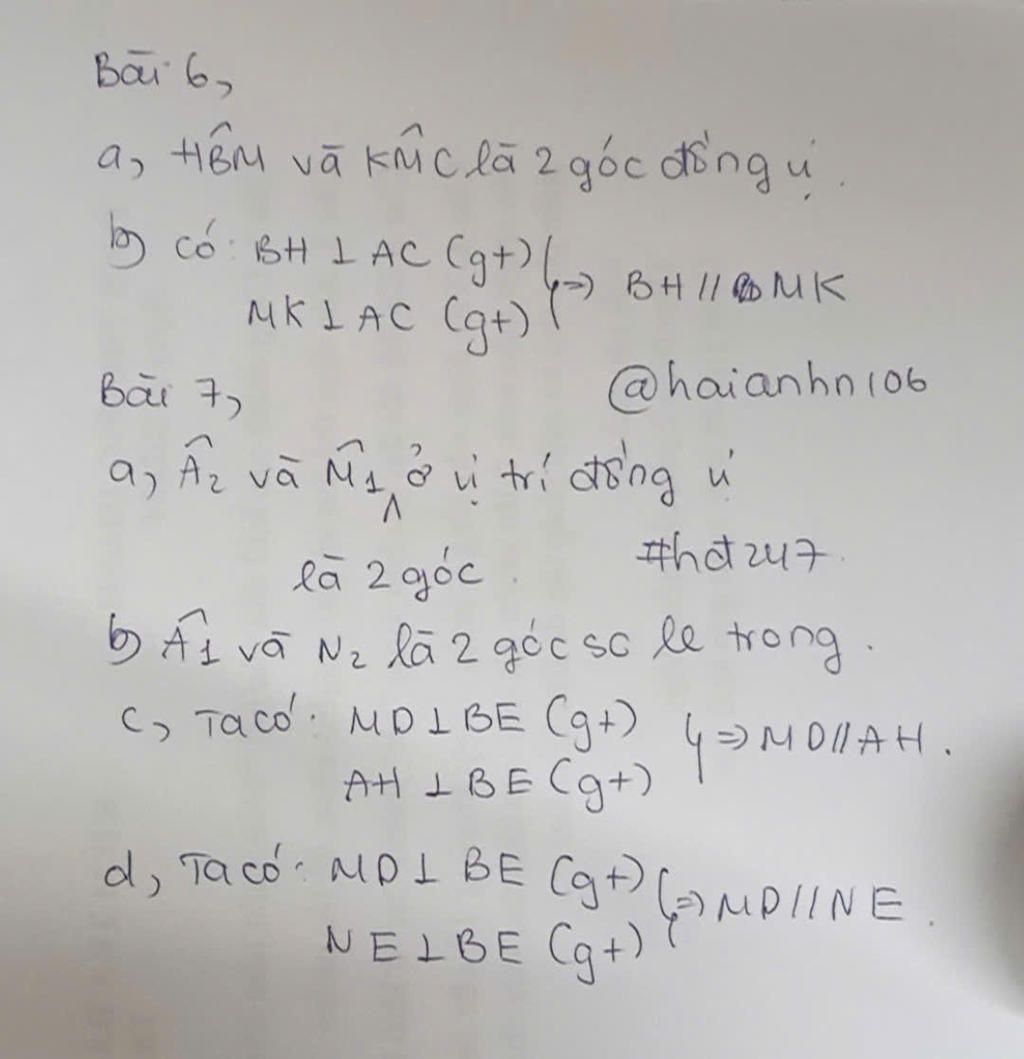 Bài 6,
a, HB̂M và KM̂C là 2 góc đồng vị.
b, có: BH ⊥ AC (gt)
MK ⊥ AC (gt) } => BH // MK
Bài 7, @haianhn106
a, Â2 và M̂1 ^ ở vị trí đồng vị
là 2 góc. #hđt247.
b, Â1 và N2 là 2 góc so le trong.
c, Ta có: MD ⊥ BE (gt)
AH ⊥ BE (gt) } => MD // AH.
d, Ta có: MD ⊥ BE (gt)
NE ⊥ BE (gt) } => MD // NE.